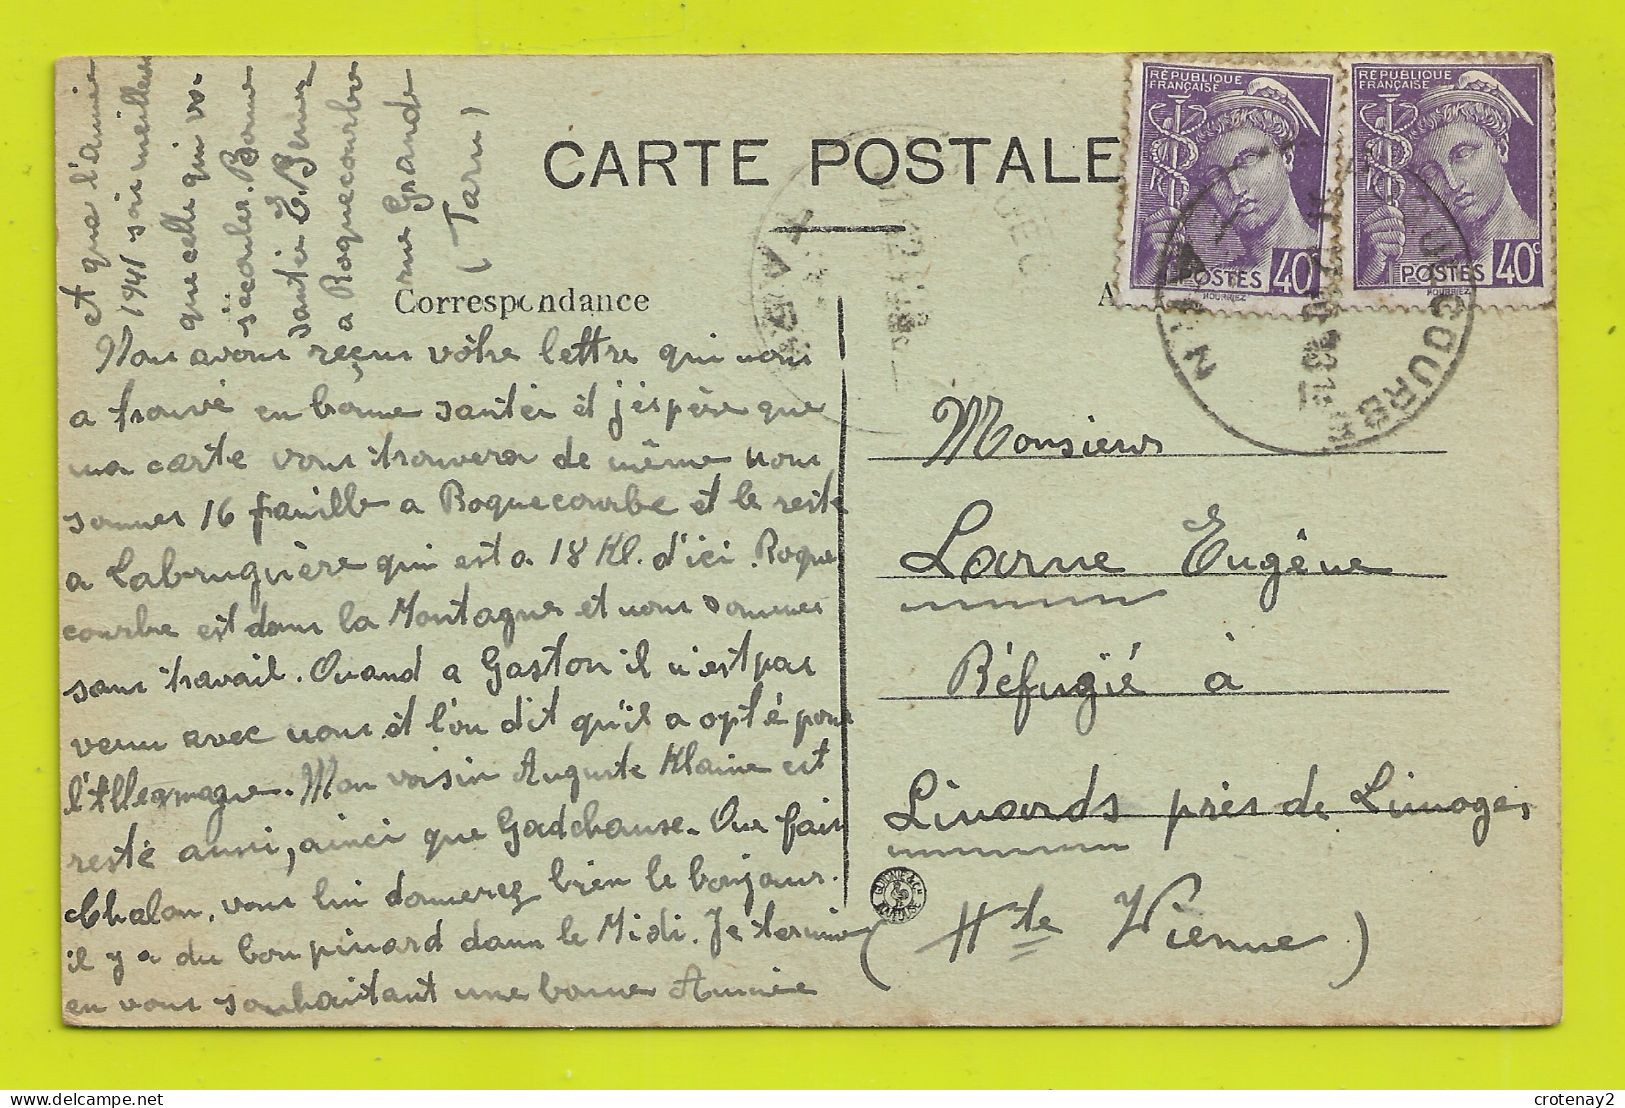 CARTE POSTALE
Correspondance
RÉPUBLIQUE FRANÇAISE
POSTES 40
RÉPUBLIQUE FRANÇAISE
POSTES 40c
Nous avons reçus vôtre lettre qui nous
a trouvé en bonne santée et j'éspère que
ma carte vous trouvera de même nous
sommes 16 famille a Roquecourbe et le reste
a Labruguière qui est a 18 Kl. d'ici. Roque
courbe est dans la Montagnes et nous sommes
sans travail. Quand a Gaston il n'est pas
venu avec nous et l'on dit qu'il a opté pour
l'Allemagne. Mon voisin Auguste Klaine est
resté aussi, ainci que Godchause. Que fait
Chalon, vous lui donnerez bien le bonjour.
il y a du bon pinard dans le Midi. Je termine
en vous souhaitant une bonne Année
et que l'année
1941 soi meilleure
que celle qui vas
s'écouler. Bonne
santée
a Roquecourbe
rue Grande
(Tarn)
Monsieur
Larue Eugène
Réfugié à
Linards près de Limoges
(Hte Vienne)
crotenay2